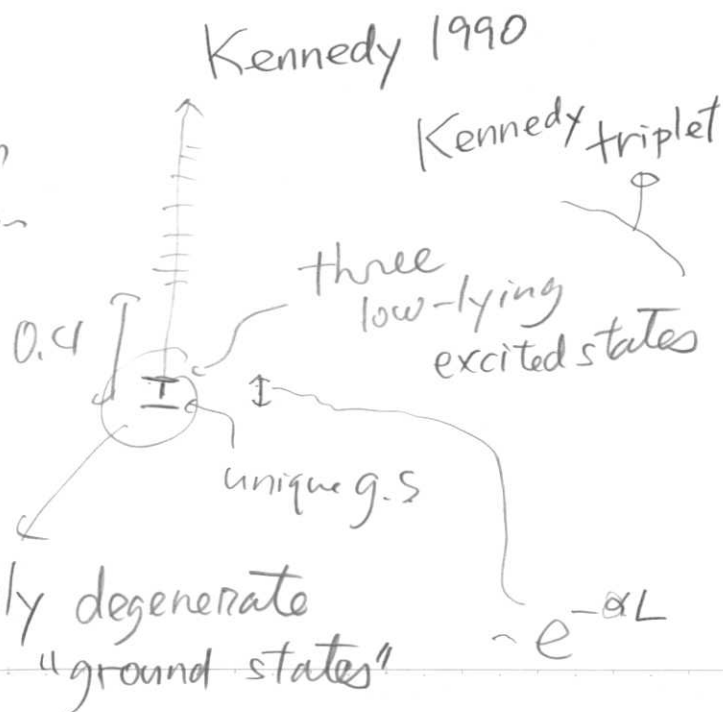 Kennedy 1990
Kennedy triplet
three
low-lying
excited states
0.4
unique g.s
ly degenerate
"ground states"
~ e^{-αL}